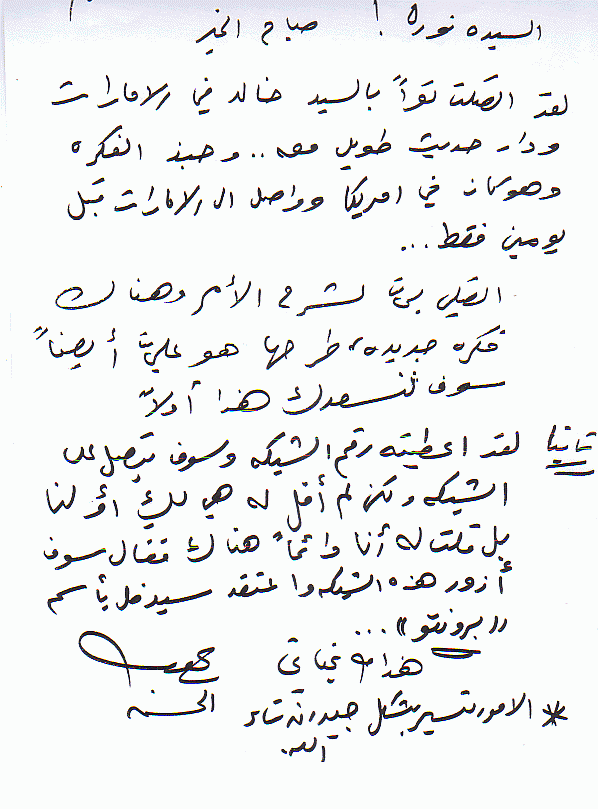 السيده نوره ! صباح الخير
لقد اتصلت تواً بالسيد خالد في الامارات
ودار حديث طويل معه .. وحبذ الفكره
وهو كان في امريكا وواصل الى الامارات قبل
يومين فقط ...
اتصلي بيَّ لشرح الأمر وهناك
فكره جديده، طرحها هو عليَّ أيضاً
سوف تسعدك هذا أولاً
ثانيا لقد اعطيته رقم الشبكه وسوف يتصل على
الشبكه ولكن لم أقل له هي لكِ أو لنا
بل قلت له أنا دائماً هناك فقال سوف
أزور هذه الشبكه واعتقد سيدخل بأسم
(( برونتو )) ...
هذا مع تحياتي
* الامور تسير بشكل جيد إن شاء
الله.